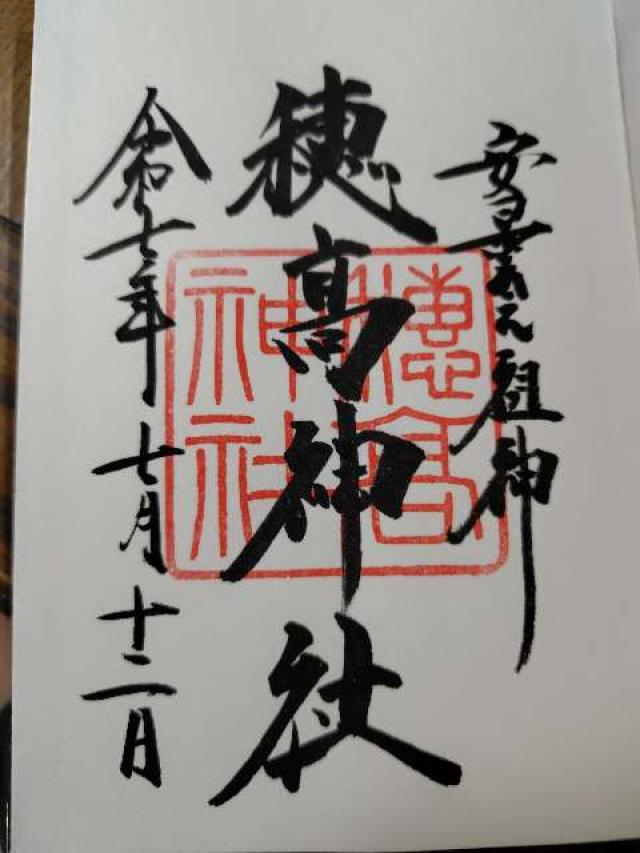 安曇祖神
穂髙神社
令和七年 七月 十二日
穂高
神社